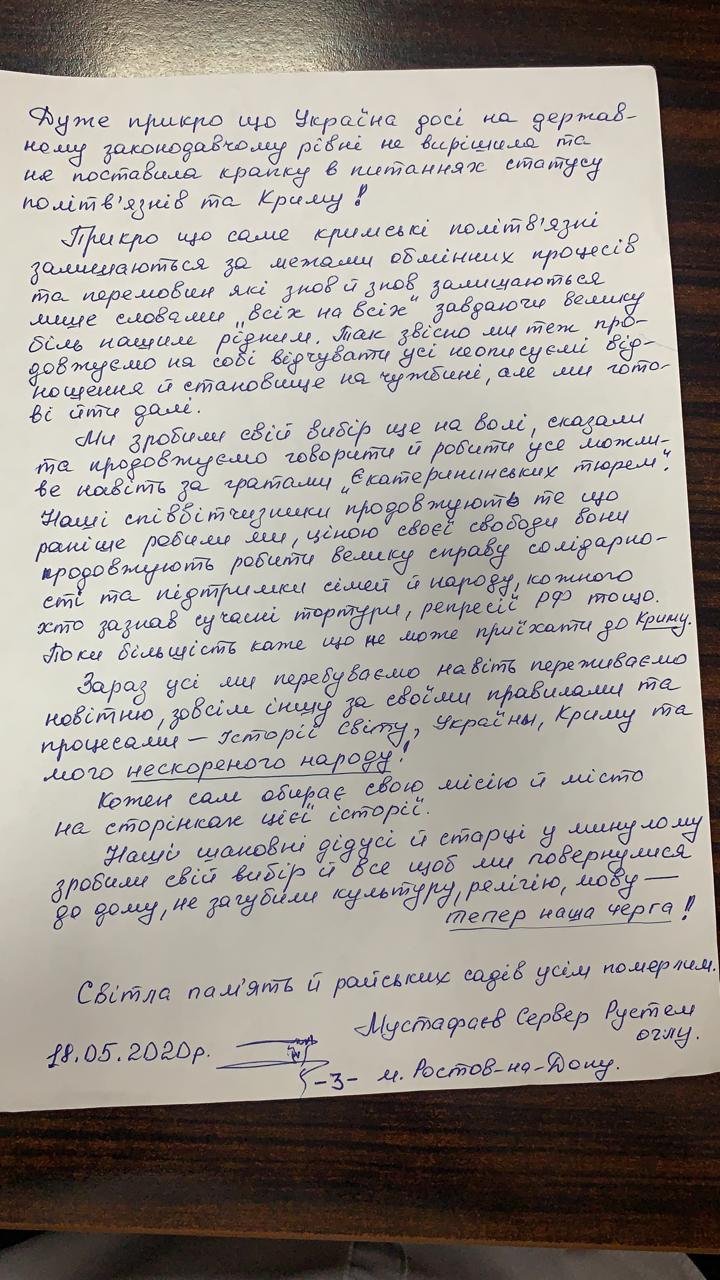 Дуже прикро що Україна досі на держав-
ному законодавчому рівні не вирішила та
не поставила крапку в питаннях статусу
політв'язнів та Криму!
Прикро що саме кримські політв'язні
залишаються за межами обмінних процесів
та перемовин які знов й знов залишаються
лише словами „всіх на всіх" завдаючи велику
біль нашим рідним. Так звісно ми теж про-
довжуємо на собі відчувати усі неописуємі від-
ношення й становище на чужбині, але ми гото-
ві йти далі.
Ми зробили свій вибір ще на волі, сказали
та продовжуємо говорити й робити усе можли-
ве навіть за гратами „Єкатерининських тюрем".
Наші співвітчизники продовжують те що
раніше робили ми, ціною своєї свободи вони
продовжують робити велику справу солідарно-
сті та підтримки сімей й народу, кожного
хто зазнав сучасні тортури, репресії РФ тощо.
Поки більшість каже що не може приїхати до Криму.
Зараз усі ми перебуваємо навіть переживаємо
новітню, зовсім іншу за своїми правилами та
процесами – Історії світу, Україны, Криму та
мого нескореного народу!
Кожен сам обирає свою місію й місто
на сторінках цієї історії.
Наші шановні дідусі й старці у минулому
зробили свій вибір й все щоб ми повернулися
до дому, не загубили культуру, релігію, мову —
тепер наша черга!
Світла пам'ять й райських садів усім померлим.
Мустафаєв Сервер Рустем
оглу.
18.05.2020р.
-3- м. Ростов-на-Дону.